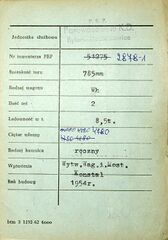 Jednostka służbowa
P. K. P.
Nr inwentarzowy PKP 51275 2848-1
Szerokość toru 785mm
Rodzaj wagonu Wh
Ilość osi 2
Ładowność w t. 8,5t.
Ciężar własny 4480
Rodzaj hamulca ręczny
Wytwórnia Wytw.Wag.i Most.
Konstal
Rok budowy 1954r.